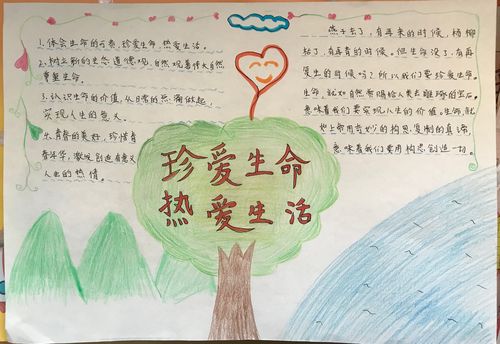 1.体会生命的可贵,珍爱生命,热爱生活。
2.树立新的生态道德观,自然观善待大自然
尊重生命。
3.认识生命的价值,从日常的点滴做起,
实现人生的意义。
4.青春的美好,珍惜青
春年华,激发创造有意义
人生的热情。
燕子去了,有再来的时候,杨柳
枯了,有再青的时候。但生命没了,有再
发生的时候吗?所以我们要珍爱生命。
生命,就如自然所赐给人类去雕琢的宝石。
意味着我们要实现人生的价值。生命,就
地上都用奇妙的构思
意味着我们要用构思创造一切。
珍爱生命
热爱生活